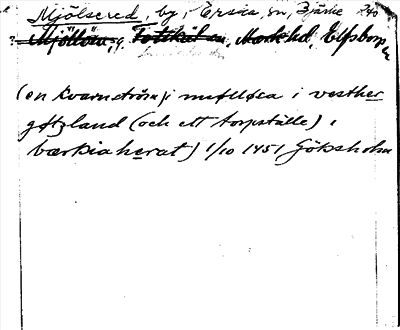 Mjölsered, by, i Ersta, sn, Bjärke 240
? Mjöllön, g. Fotskäl sn, Mark hd, Elfsborgs
(en kvarnström i mølløsa i vesther
gøtzland (och ett torpställe) i
bærkiaherat) 1/10 1451 Göksholm